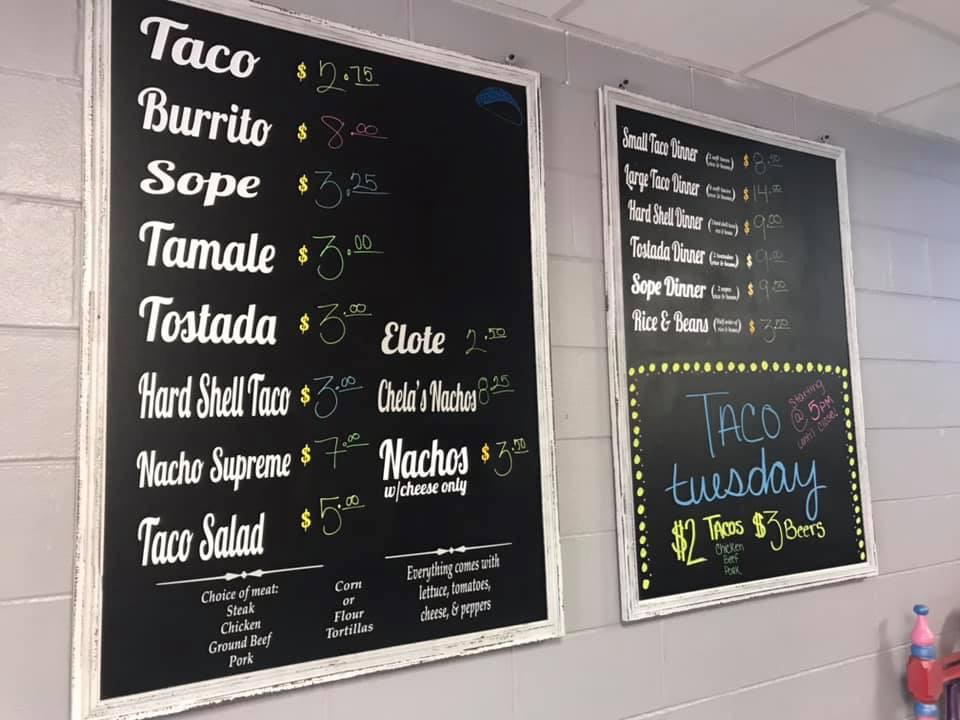 Taco $ 2.75
Burrito $ 8.00
Sope $ 3.25
Tamale $ 3.00
Tostada $ 3.00
Hard Shell Taco $ 3.00
Nacho Supreme $ 7.00
Taco Salad $ 5.00
Elote 2.50
Chela's Nachos 8.25
Nachos $ 3.50
w/cheese only
Choice of meat:
Steak
Chicken
Ground Beef
Pork
Corn
or
Flour
Tortillas
Everything comes with
lettuce, tomatoes,
cheese, & peppers
Small Taco Dinner $ 8.50
Large Taco Dinner $ 14.00
Hard Shell Dinner $ 9.00
Tostada Dinner $ 9.00
Sope Dinner $ 9.00
Rice & Beans $ 3.50
Taco
tuesday
Starting
@ 5PM
until close!
$2 Tacos $3 Beers
Chicken
Beef
Pork